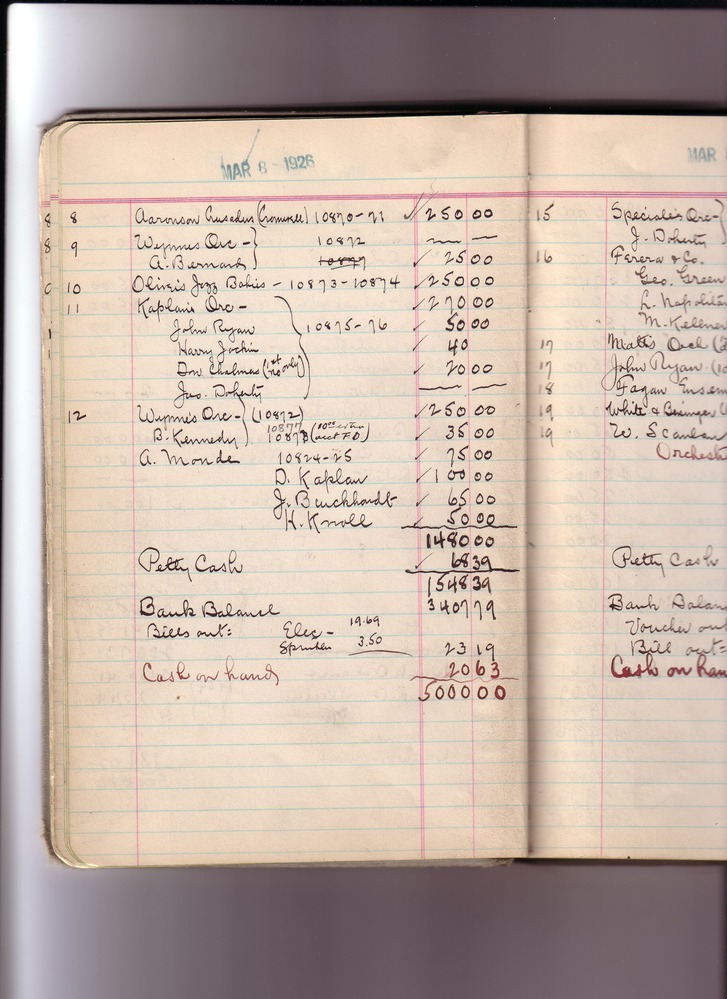 MAR 8 - 1926
8 8 Aaronson Crusaders (Cromwell) 10870-71 ✓ 250 00
8 9 Wynnes Orc - } 10872 — —
A. Bernard 10877 ✓ 25 00
0 10 Jazz Babies - 10873-10874 ✓ 250 00
11 Kaplan's Orc - ✓ 270 00
John Ryan } 10875-76 ✓ 50 00
Harry ✓ 40
Don Chalmers (1st only) ✓ 20 00
Jas. Doherty — —
12 Wynne's Orc - } (10872) ✓ 250 00
10877
B. Kennedy 10878 ( acct F.D) ✓ 35 00
A. Monde 10824-25 ✓ 75 00
D. Kaplan ✓ 100 00
J. Burckhardt ✓ 65 00
K. Knoll ✓ 50 00
1480 00
Petty Cash ✓ 68 39
1548 39
Bank Balance 3407 79
Bills out: Elec - 19.69
3.50 23 19
Cash on hand 20 63
5000 00
MAR
15 Speciale's Orc - }
J. Doherty
16 Ferera & Co.
Geo. Green
L.
M.
17 Orch
17 John Ryan
18 Fagan
19 White &
19 W. Scanlan
Petty Cash
Bank
Voucher out
Bill out =
Cash on